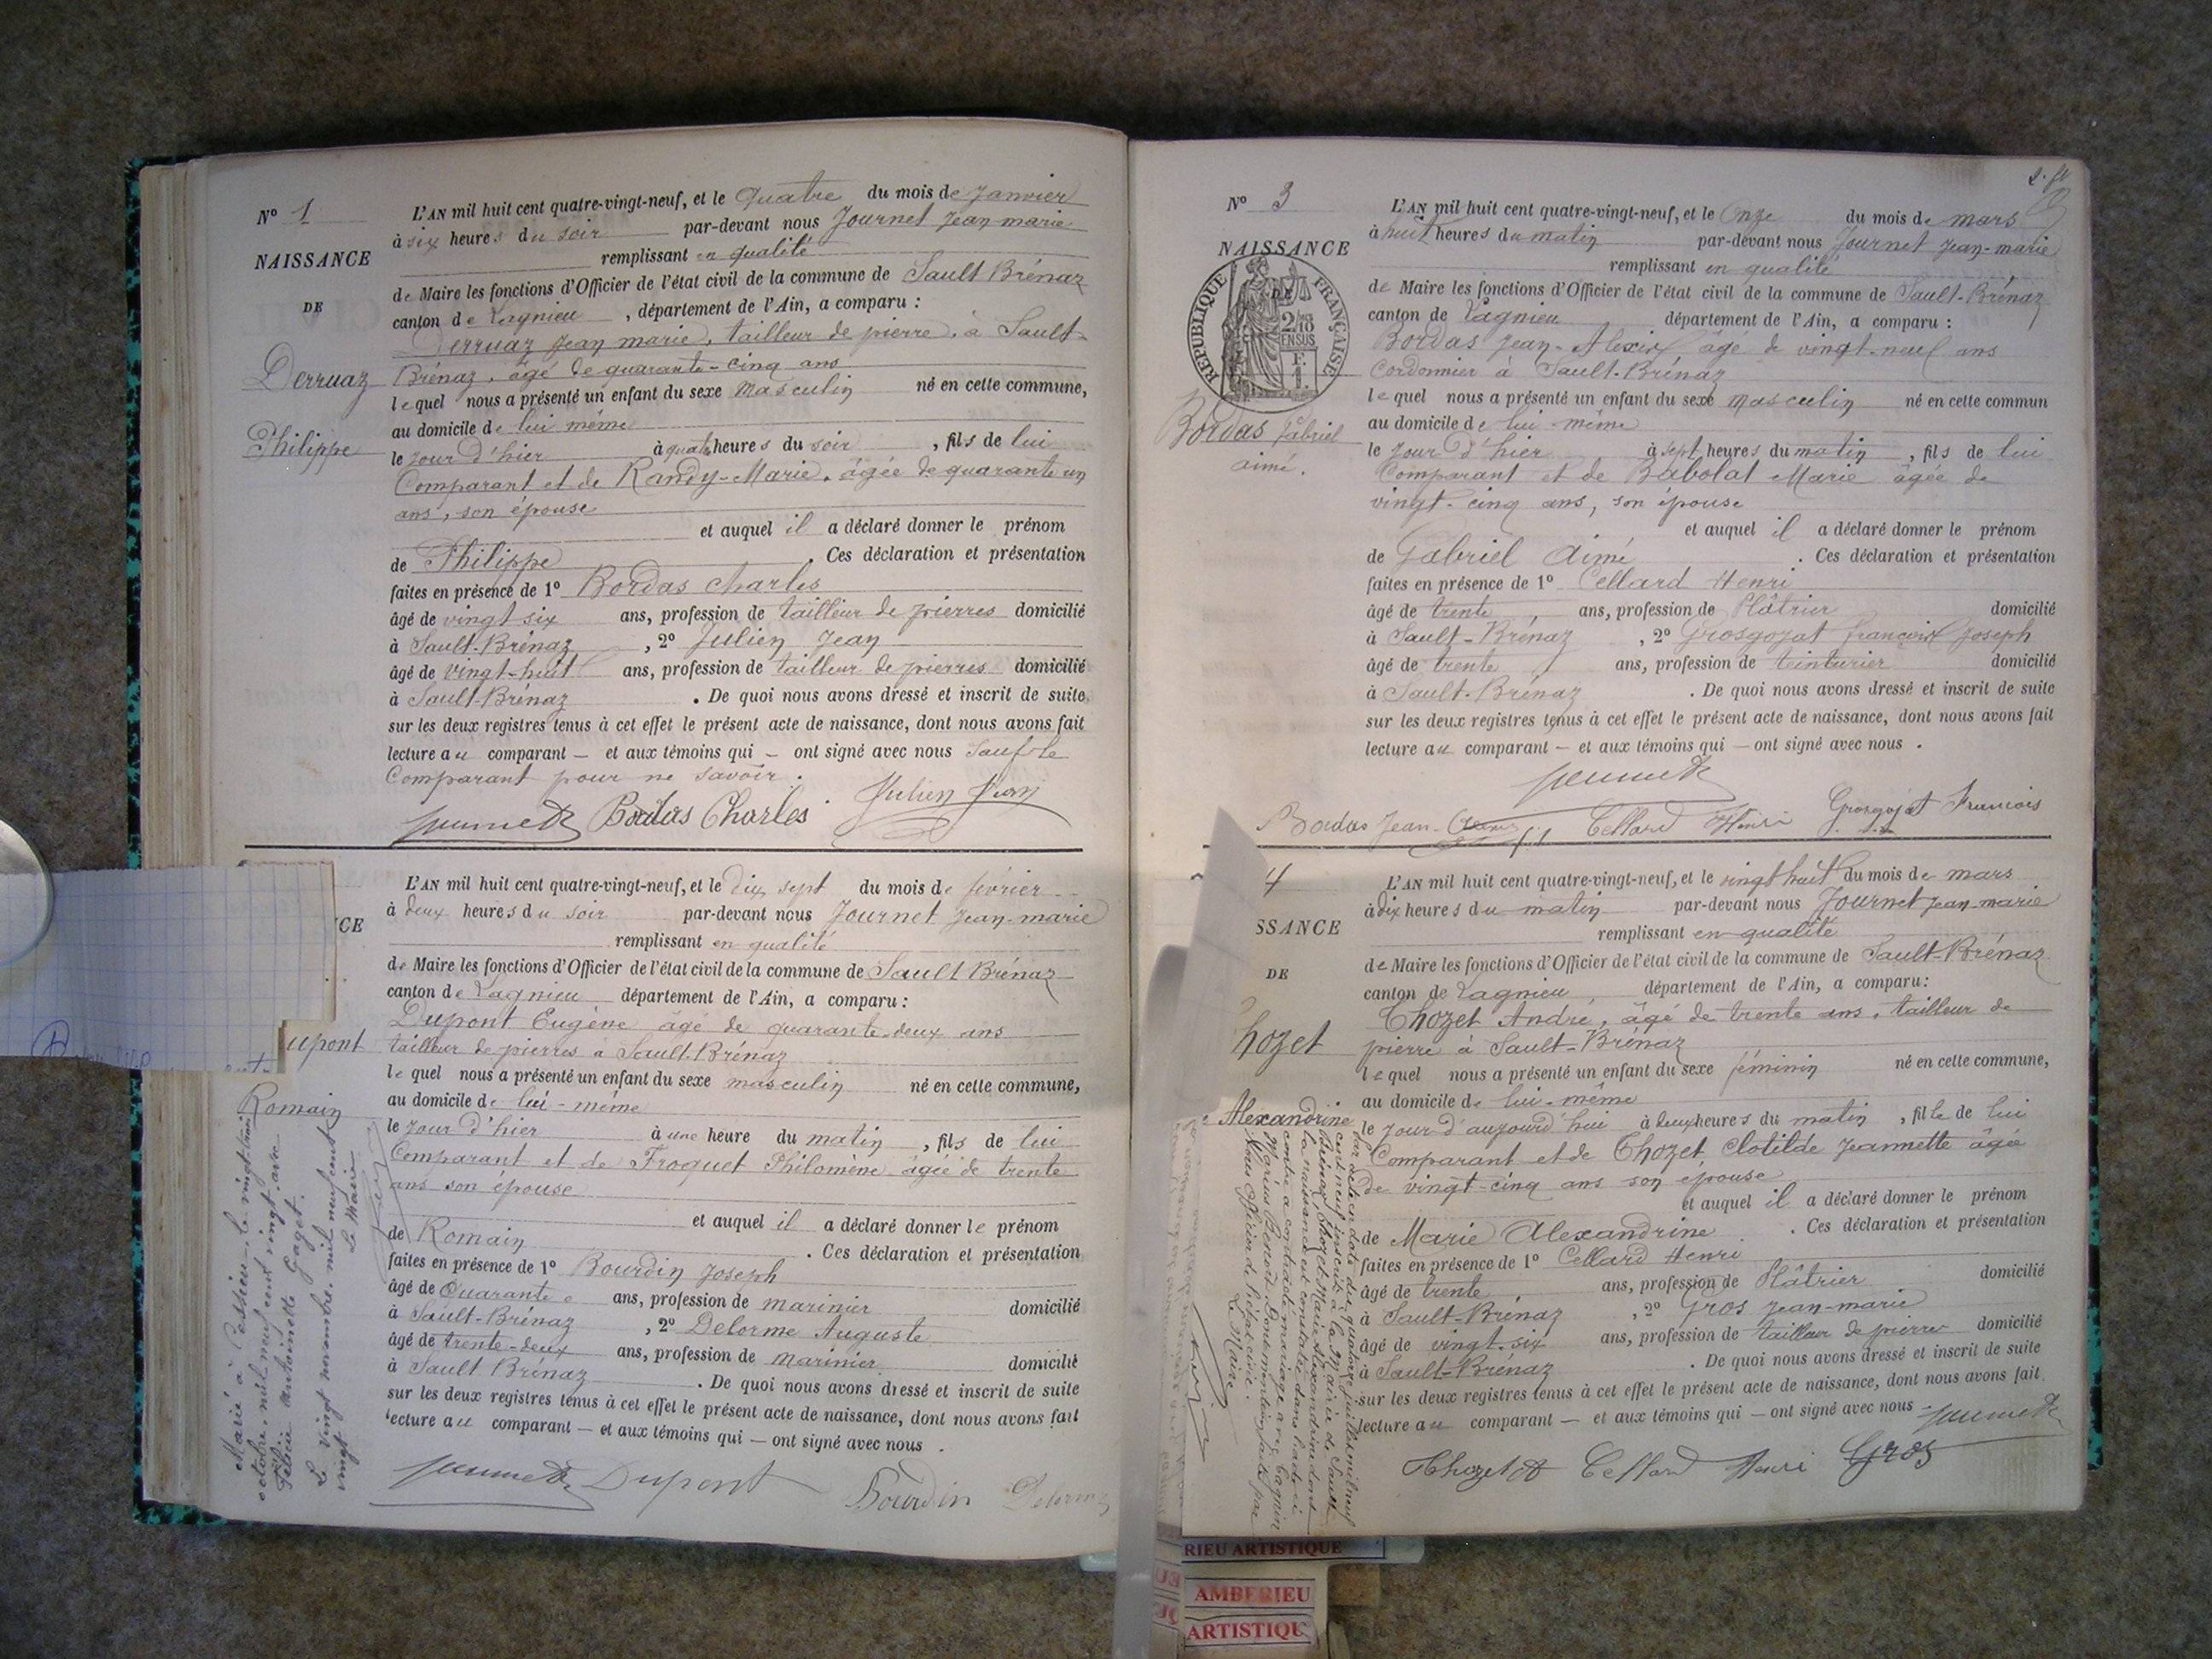 N° 1
NAISSANCE
DE
Derruaz
Philippe
L'AN mil huit cent quatre-vingt-neuf, et le quatre du mois de Janvier
à six heures du soir par-devant nous Journet Jean marie
remplissant en qualité
de Maire les fonctions d'Officier de l'état civil de la commune de Sault Brénaz
canton de Lagnieu , département de l'Ain, a comparu :
Derruaz Jean marie, tailleur de pierre, à Sault-
Brénaz, âgé de quarante-cinq ans
lequel nous a présenté un enfant du sexe masculin né en cette commune,
au domicile de lui même
le jour d'hier à quatre heures du soir , fils de lui
Comparant et de Randy-Marie, âgée de quarante un
ans, son épouse
et auquel il a déclaré donner le prénom
de Philippe . Ces déclaration et présentation
faites en présence de 1° Bordas Charles
âgé de vingt six ans, profession de tailleur de pierres domicilié
à Sault-Brénaz , 2° Julien Jean
âgé de vingt-huit ans, profession de tailleur de pierres domicilié
à Sault-Brénaz . De quoi nous avons dressé et inscrit de suite
sur les deux registres tenus à cet effet le présent acte de naissance, dont nous avons fait
lecture au comparant — et aux témoins qui — ont signé avec nous sauf le
Comparant pour ne savoir.
Bordas Charles Julien Jean
CE
upont
Romain
L'AN mil huit cent quatre-vingt-neuf, et le dix sept du mois de février
à deux heures du soir par-devant nous Journet Jean-marie
remplissant en qualité
de Maire les fonctions d'Officier de l'état civil de la commune de Sault Brénaz
canton de Lagnieu département de l'Ain, a comparu :
Dupont Eugène âgé de quarante-deux ans
tailleur de pierres à Sault-Brénaz
lequel nous a présenté un enfant du sexe masculin né en cette commune,
au domicile de lui-même
le jour d'hier à une heure du matin , fils de lui
Comparant et de Froquet Philomène âgée de trente
ans son épouse
et auquel il a déclaré donner le prénom
de Romain . Ces déclaration et présentation
faites en présence de 1° Bourdin Joseph
âgé de Quarante ans, profession de marinier domicilié
à Sault-Brénaz , 2° Delorme Auguste
âgé de trente-deux ans, profession de marinier domicilié
à Sault Brénaz . De quoi nous avons dressé et inscrit de suite
sur les deux registres tenus à cet effet le présent acte de naissance, dont nous avons fait
lecture au comparant — et aux témoins qui — ont signé avec nous .
Dupont Bourdin Delorme
Marié à Cessieu, le vingt-trois
octobre mil neuf cent vingt avec
Félicie Antoinette Gaget.
Le vingt novembre mil neuf cent
vingt Le Maire
N° 3
NAISSANCE
DE
REPUBLIQUE FRANÇAISE
Bordas Gabriel
aimé.
L'AN mil huit cent quatre-vingt-neuf, et le Onze du mois de mars
à huit heures du matin par-devant nous Journet Jean-marie
remplissant en qualité
de Maire les fonctions d'Officier de l'état civil de la commune de Sault-Brénaz
canton de Lagnieu département de l'Ain, a comparu :
Bordas Jean-Alexis âgé de vingt-neuf ans
Cordonnier à Sault-Brénaz
lequel nous a présenté un enfant du sexe masculin né en cette commun
au domicile de lui-même
le jour d'hier à sept heures du matin , fils de lui
Comparant et de Babolat Marie âgée de
vingt-cinq ans, son épouse
et auquel il a déclaré donner le prénom
de Gabriel Aimé . Ces déclaration et présentation
faites en présence de 1° Cellard Henri
âgé de trente ans, profession de Plâtrier domicilié
à Sault-Brénaz , 2° Grosgojat françois Joseph
âgé de trente ans, profession de teinturier domicilié
à Sault-Brénaz . De quoi nous avons dressé et inscrit de suite
sur les deux registres tenus à cet effet le présent acte de naissance, dont nous avons fait
lecture au comparant — et aux témoins qui — ont signé avec nous .
Bordas Jean Cellard Henri Grosgojat Francois
4
SSANCE
DE
hozet
Alexandrine
L'AN mil huit cent quatre-vingt-neuf, et le vingt huit du mois de mars
à dix heures du matin par-devant nous Journet Jean-marie
remplissant en qualité
de Maire les fonctions d'Officier de l'état civil de la commune de Sault-Brénaz
canton de Lagnieu département de l'Ain, a comparu:
Chozet André, âgé de trente ans, tailleur de
pierre à Sault-Brénaz
lequel nous a présenté un enfant du sexe féminin né en cette commune,
au domicile de lui-même
le jour d'aujourd'hui à deux heures du matin , fille de lui
Comparant et de Chozet Clotilde Jeannette âgée
de vingt-cinq ans son épouse
et auquel il a déclaré donner le prénom
de Marie Alexandrine . Ces déclaration et présentation
faites en présence de 1° Cellard Henri
âgé de trente ans, profession de Plâtrier domicilié
à Sault-Brénaz , 2° Gros Jean-marie
âgé de vingt-six ans, profession de tailleur de pierres domicilié
à Sault-Brénaz . De quoi nous avons dressé et inscrit de suite
sur les deux registres tenus à cet effet le présent acte de naissance, dont nous avons fait
lecture au comparant — et aux témoins qui — ont signé avec nous
Chozet A Cellard Henri Gros
Par acte en date du quatorze juillet mil neuf
cent neuf inscrit à la Mairie de Sault
Brénaz Chozet Marie Alexandrine dont
la naissance est constatée dans l'acte ci
contre a contracté mariage avec Cagnin
Marius Benoît. Dont mention faite par
Nous Officier de l'état civil.
Le Maire
RIEU ARTISTIQUE
AMBERIEU
ARTISTIQU